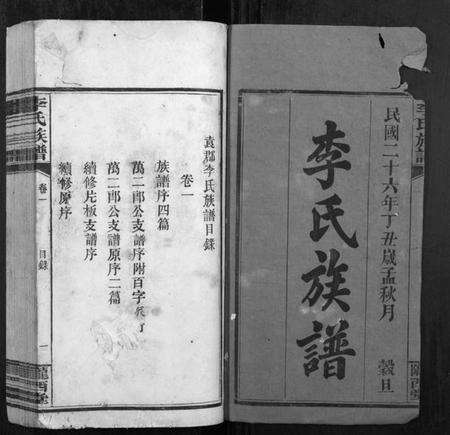 民國二十六年丁丑歲孟秋月 穀旦
李氏族譜
李氏族譜
隴西堂
袁郡李氏族譜目錄
卷一
族譜序四篇
萬二郎公支譜序附百字
萬二郎公支譜原序二篇
續修片板支譜序
續修原序
李氏族譜
卷一
目錄
一
隴西堂